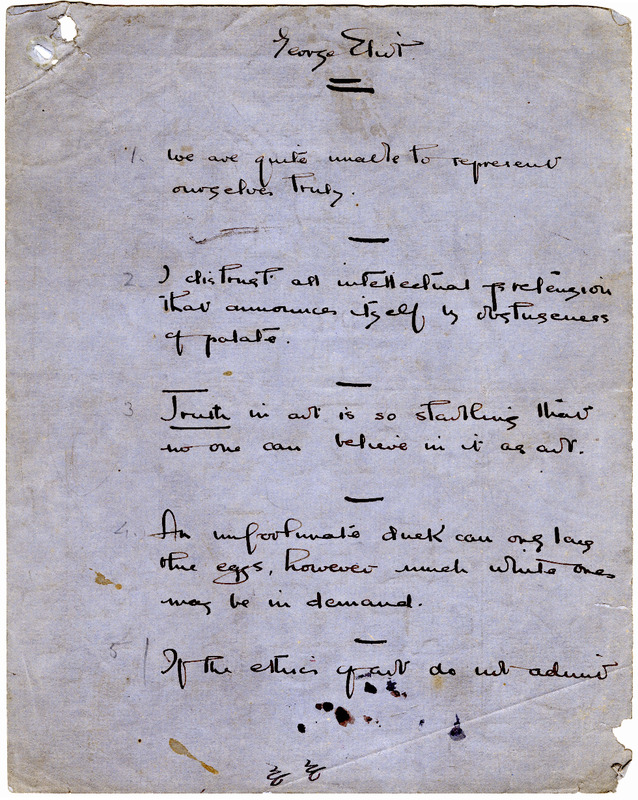 George Eliot.
1. We are quite unable to represent
ourselves truly.
2. I distrust all intellectual pretension
that announces itself by obtuseness
of palate.
3 Truth in art is so startling that
no one can believe in it as art.
4. An unfortunate duck can only lay
blue eggs, however much white ones
may be in demand.
5 If the ethics of art do not admit